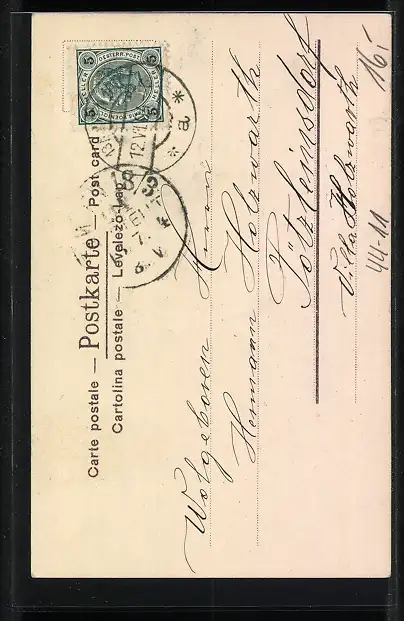 Carte postale — Postkarte — Post card
Cartolina postale — Levelező-Lap
5 OESTERR. POST 5
5 5
12.VII
* a *
18 3
Wolgeboren Herrn
Hermann Holzwarth
Pötzleinsdorf
Villa Holzwarth
44-11
16,-